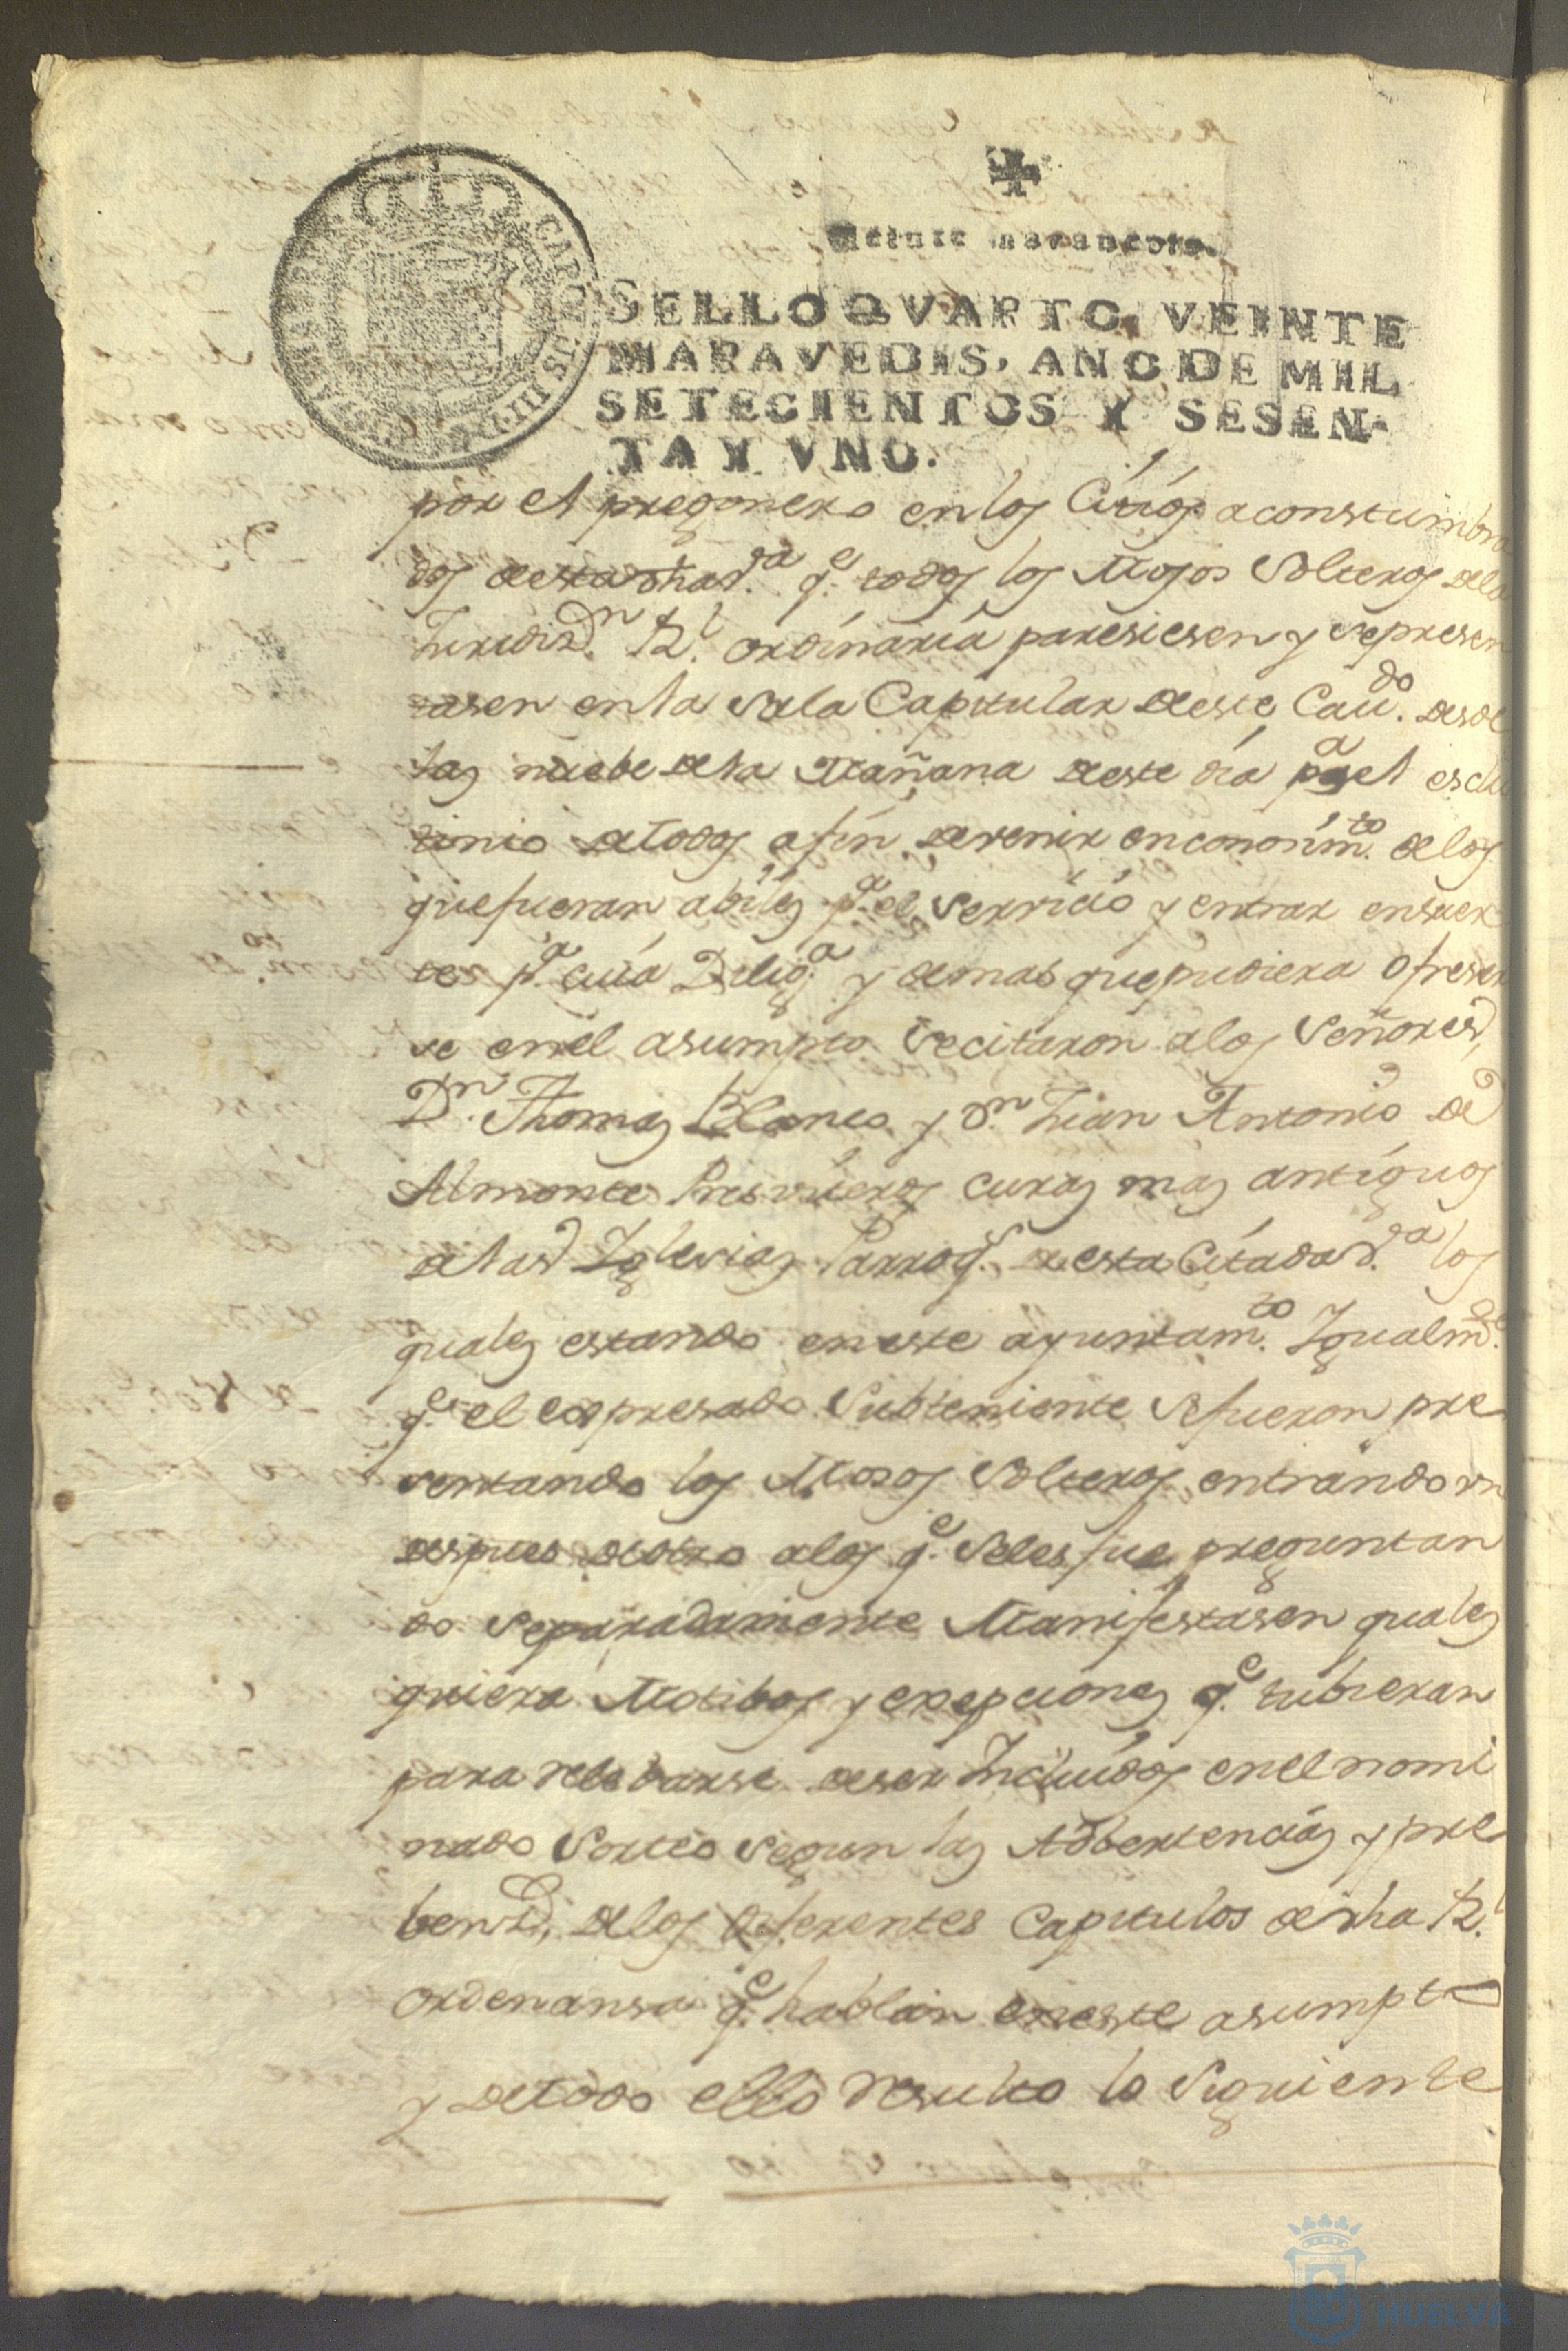 Veinte maravedis.
SELLO QVARTO, VEINTE
MARAVEDIS, AÑO DE MIL
SETECIENTOS Y SESEN-
TA Y VNO.
por el pregonero en los Citios aconstumbra
dos de esta dha v.ª q.e todos los Mosos Solteros dela
Jurisdis.n R.l ordinaria paresiesen y se presen
tasen en la Sala Capitular de este Cau.do desde
las nuebe dela Mañana de este dia p.a el escru
tinio de todos afin de venir en conosim.to de los
que fueran abiles p.a el Servicio y entrar en suer
te p.a cuia Dilig.a y demas que pudiera ofreser
se en el asumpto se citaron a los Señores
D.n Thomas Blanco y D.n Juan Antonio de
Almonte Presviteros curas mas antiguos
de las Iglesias Parroq.s de esta Citada V.ª los
quales estando en este ayuntam.to Igualm.te
q.e el expresado Subteniente se fueron pre
sentando los Mosos Solteros entrando vn
despues de otro a los q.e se les fue preguntan
do separadamente Manifestasen quales
quiera Motibos y exepciones q.e tubieran
para relebarse de ser Incluidos en el nomi
nado Sorteo segun las Adbertencias y pre
benz.s de los diferentes Capitulos de dha R.l
ordenansa q.e hablan en este asumpto
y de todo ello resulto lo Siguiente
HUELVA